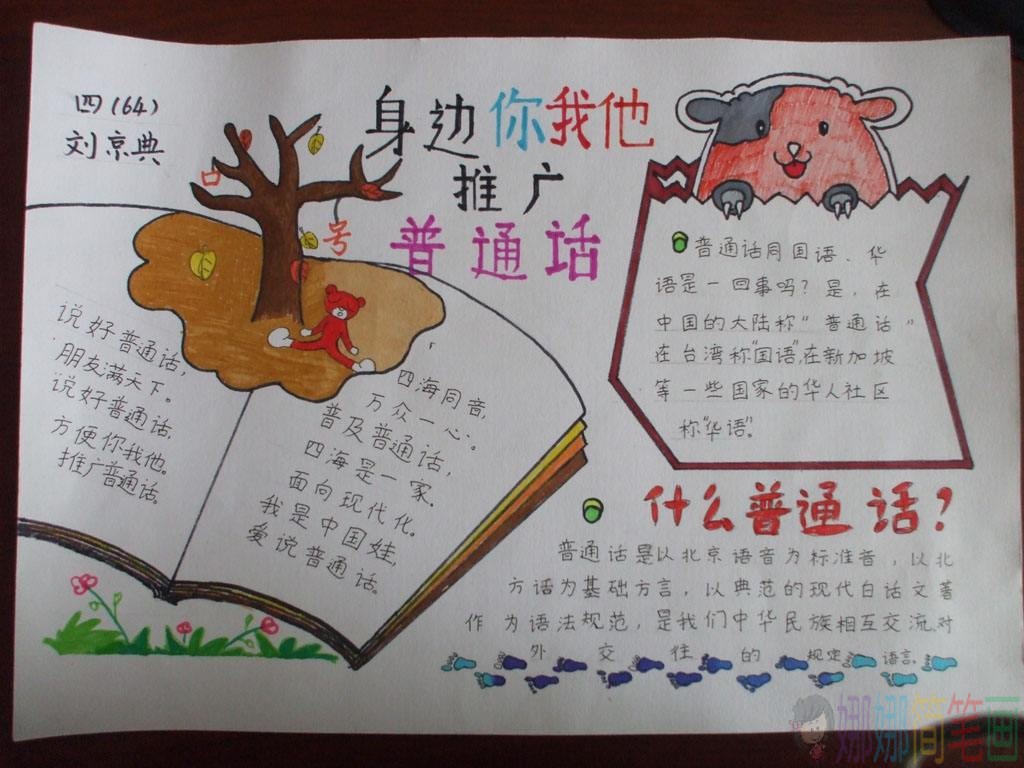 四(64)
刘京典
身边你我他
推广
普通话
口
号
说好普通话,
朋友满天下。
说好普通话,
方便你我他。
推广普通话。
四海同音,
万众一心。
普及普通话,
四海是一家.
面向现代化。
我是中国娃,
爱说普通话。
普通话同国语、华
语是一回事吗?是,在
中国的大陆称"普通话"
在台湾称"国语",在新加坡
等一些国家的华人社区
称"华语"。
什么普通话?
普通话是以北京语音为标准音,以北
方话为基础方言,以典范的现代白话文著
作为语法规范,是我们中华民族相互交流.对
外交往的规定语言.
娜娜简笔画